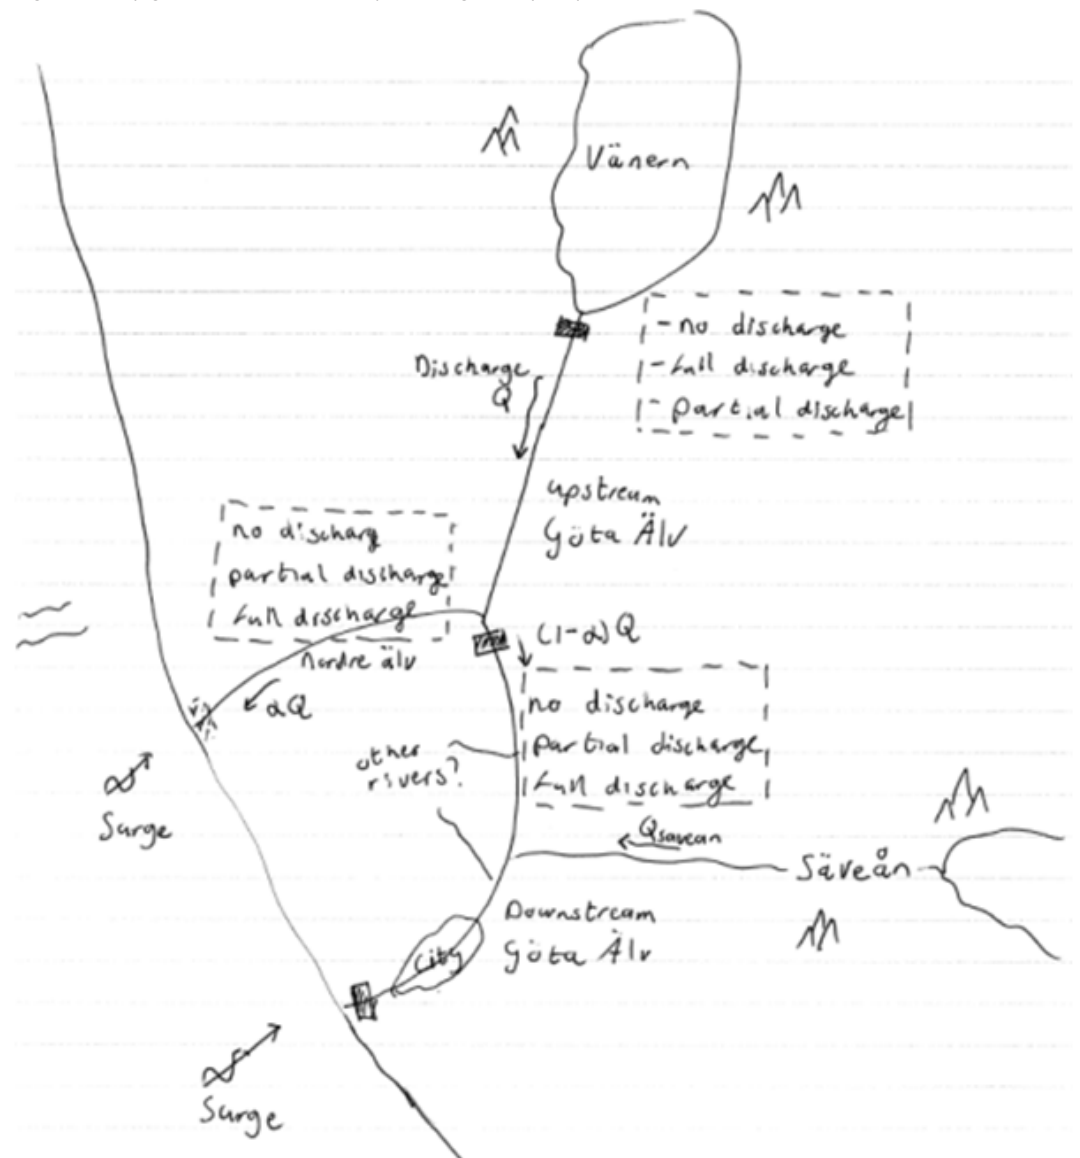 Vänern
- no discharge
- full discharge
- partial discharge
Discharge
Q
upstream
Göta Älv
no discharg
partial discharge
full discharge
Nordre älv
αQ
(1-α)Q
no discharge
partial discharge
full discharge
other
rivers?
Surge
Qsavean
Säveån
Downstream
Göta Älv
city
Surge